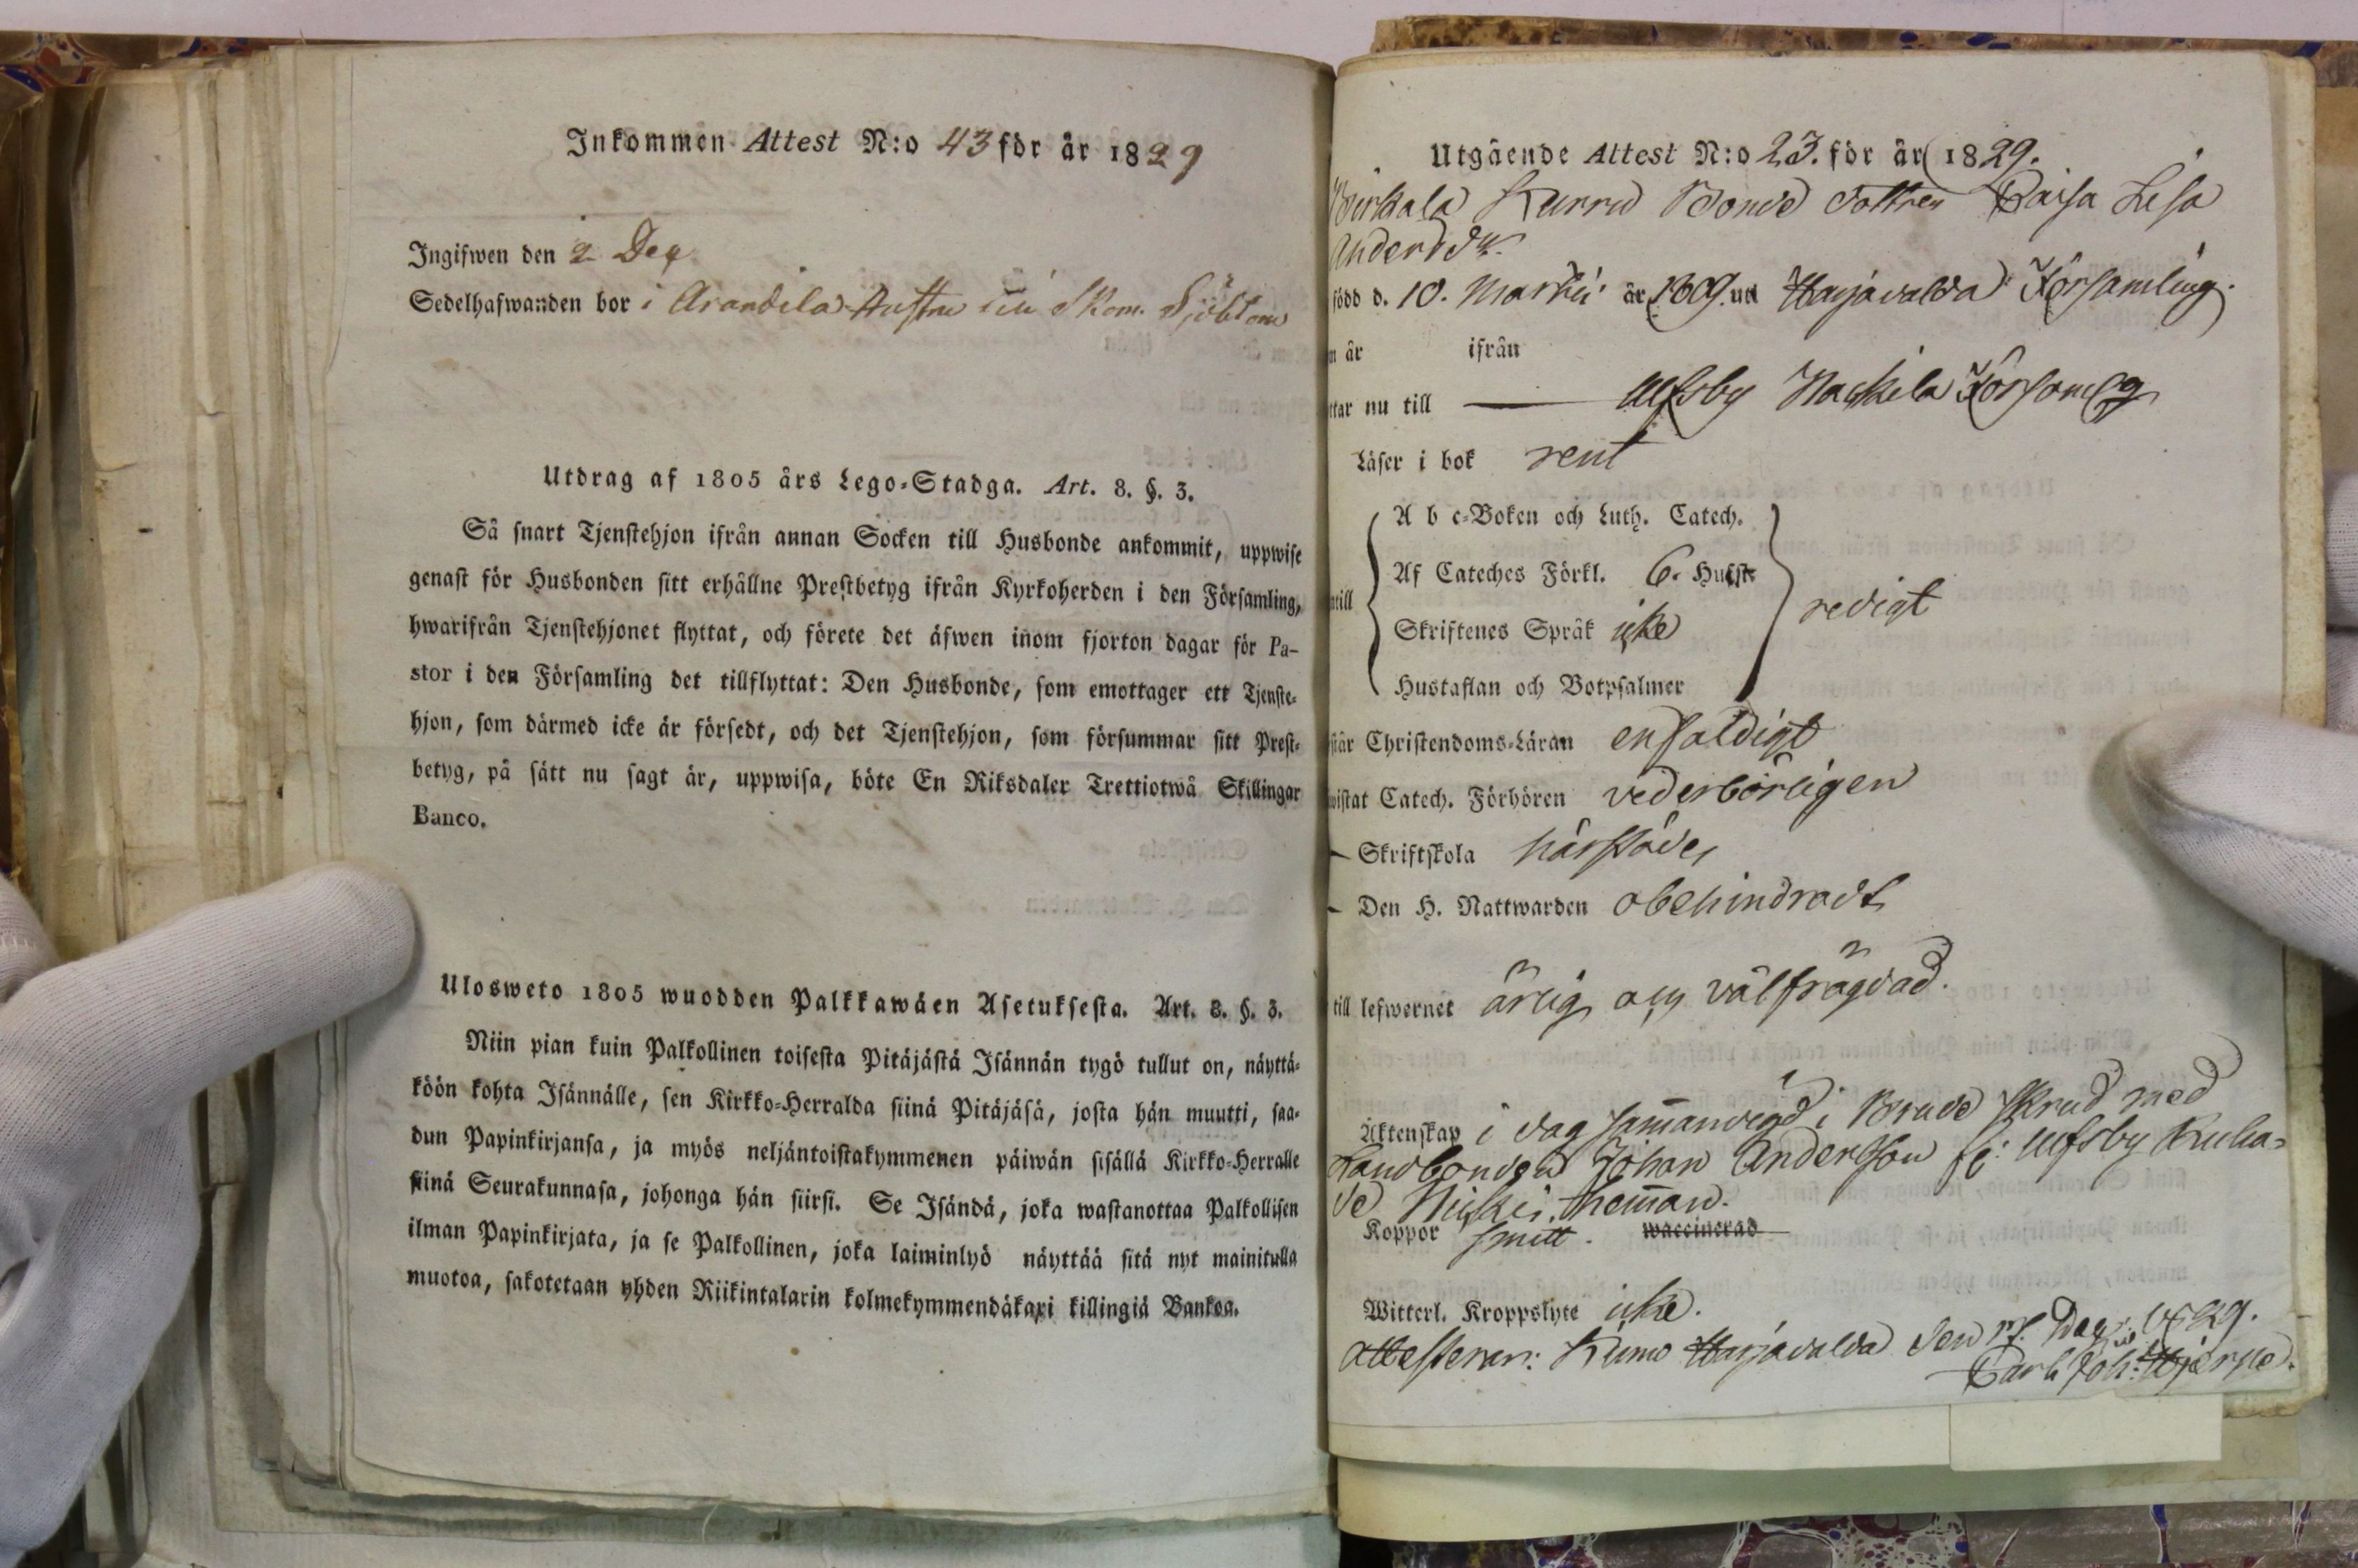 Inkommen Attest N:o 43 för år 1829
Ingifwen den 2 Dec
Sedelhafwanden bor i Arandila
Utdrag af 1805 års Lego-Stadga. Art. 8. §. 3.
Så snart Tjenstehjon ifrån annan Socken till Husbonde ankommit, uppwise
genast för Husbonden sitt erhållne Prestbetyg ifrån Kyrkoherden i den Församling,
hwarifrån Tjenstehjonet flyttat, och förete det äfwen inom fjorton dagar för Pa-
stor i den Församling det tillflyttat: Den Husbonde, som emottager ett Tjenste-
hjon, som därmed icke är försedt, och det Tjenstehjon, som försummar sitt Prest-
betyg, på sätt nu sagt är, uppwisa, böte En Riksdaler Trettiotwå Skillingar
Banco.
Ulosweto 1805 wuodden Palkkawäen Asetuksesta. Art. 8. §. 3.
Niin pian kuin Palkollinen toisesta Pitäjästä Isännän tygö tullut on, näyttä-
köön kohta Isännälle, sen Kirkko-Herralda siinä Pitäjäsä, josta hän muutti, saa-
dun Papinkirjansa, ja myös neljäntoistakymmenen päiwän sisällä Kirkko-Herralle
siinä Seurakunnasa, johonga hän siirsi. Se Isändä, joka wastanottaa Palkollisen
ilman Papinkirjata, ja se Palkollinen, joka laiminlyö näyttää sitä nyt mainitulla
muotoa, sakotetaan yhden Riikintalarin kolmekymmendäkaxi killingiä Bankoa.
Utgående Attest N:o 23. för år 1829.
Pirkala Kurru Bonde dottren Caisa Lisa
Andersdr.
född d. 10. Martii år 1809. uti Harjavalda Församling.
n år ifrån
ttar nu till — Ulfsby Nackila Församlg
Läser i bok rent
A b c-Boken och Luth. Catech.
Af Cateches Förkl. 6. Hufst.
till
Skriftenes Språk icke
redigt
Hustaflan och Botpsalmer
står Christendoms-Läran enfaldigt
wistat Catech. Förhören vederbörligen
- Skriftskola härstädes
- Den H. Nattwarden obehindradt
till lefwernet ärlig och välfrägdad.
Äktenskap i dag sammanvigd i Brude skrud med
Landbonden Johan Andersson fr. Ulfsby
hemman.
Koppor smitt. waccinerad
Witterl. Kroppslyte icke.
attesterar: Kumo Harjavalda den Dec. 1829.
Carl Joh: